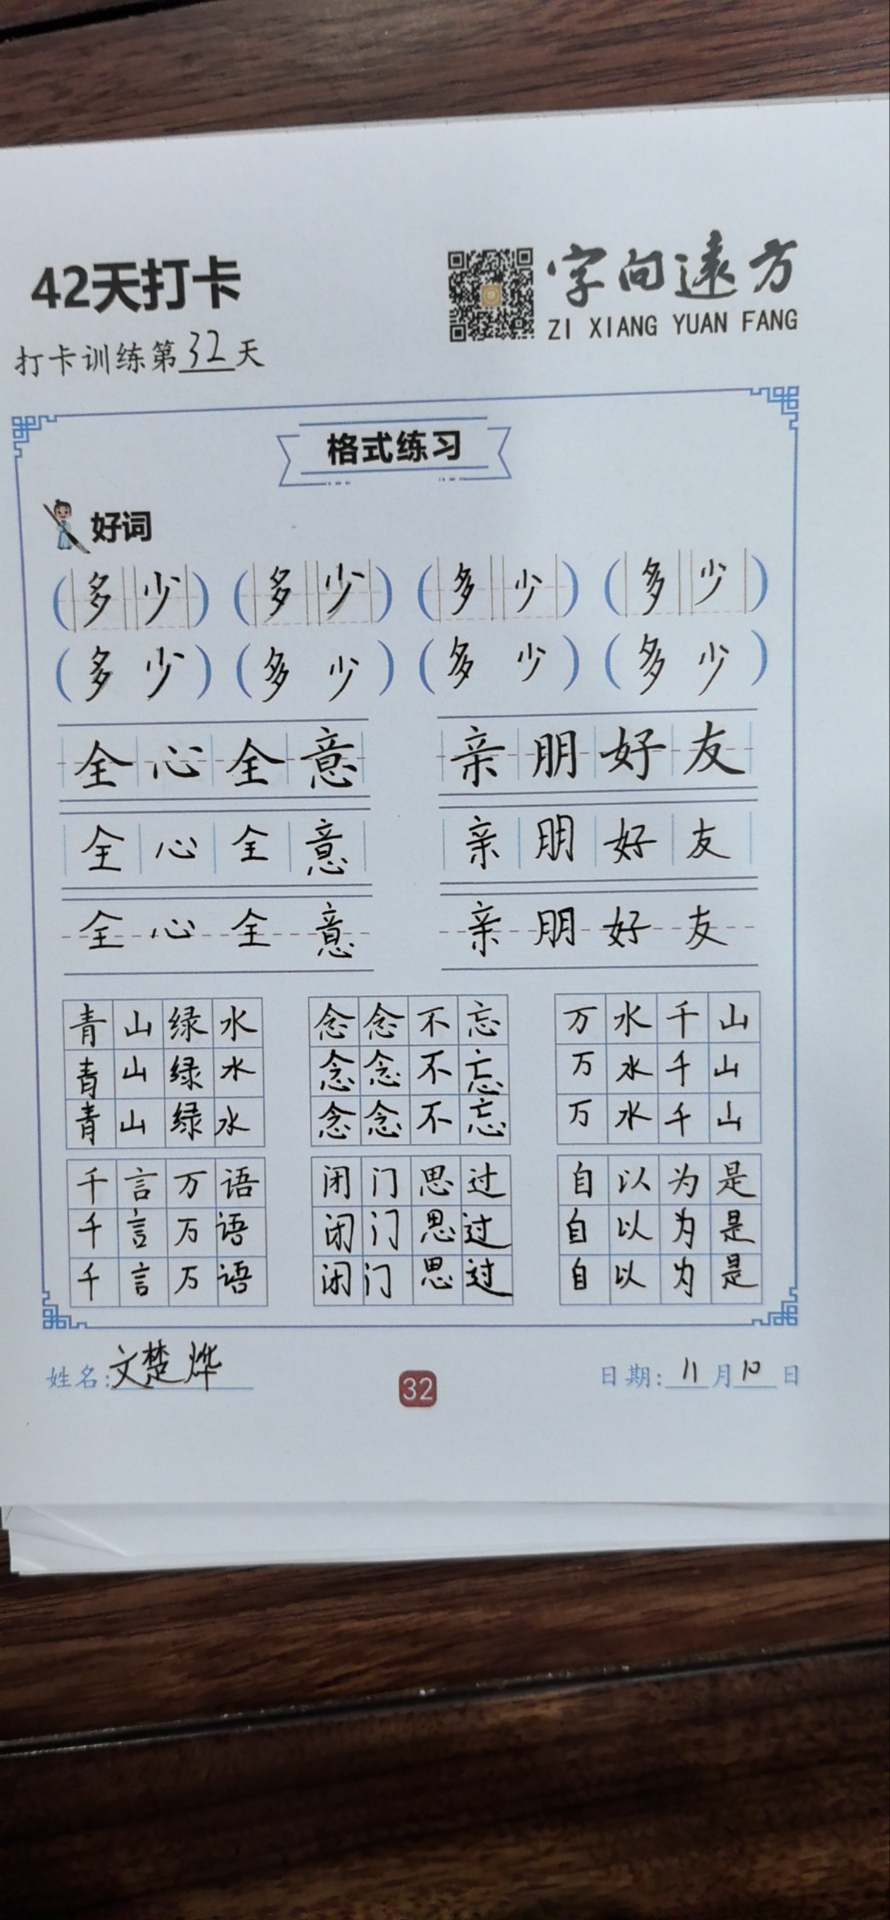 42天打卡
字向遠方
ZI XIANG YUAN FANG
打卡训练第32天
格式练习
好词
(多少) (多少) (多少) (多少)
(多少) (多少) (多少) (多少)
全心全意 亲朋好友
全心全意 亲朋好友
全心全意 亲朋好友
青山绿水 念念不忘 万水千山
青山绿水 念念不忘 万水千山
青山绿水 念念不忘 万水千山
千言万语 闭门思过 自以为是
千言万语 闭门思过 自以为是
千言万语 闭门思过 自以为是
姓名:文楚烨 32 日期:11月10日